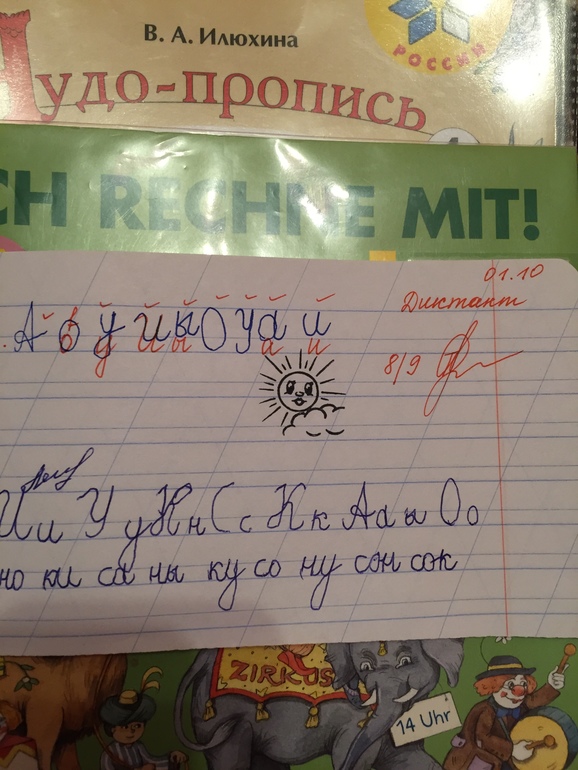 В. А. Илюхина
РОССИИ
Чудо-пропись
CH RECHNE MIT!
01.10
Диктант
А о у и ы О У а и
8/9
и ы а и
Ии Уу Нн Сс Кк Аа ы Оо
но ки са ны ку со ну сон сок
ZIRKUS
14 Uhr